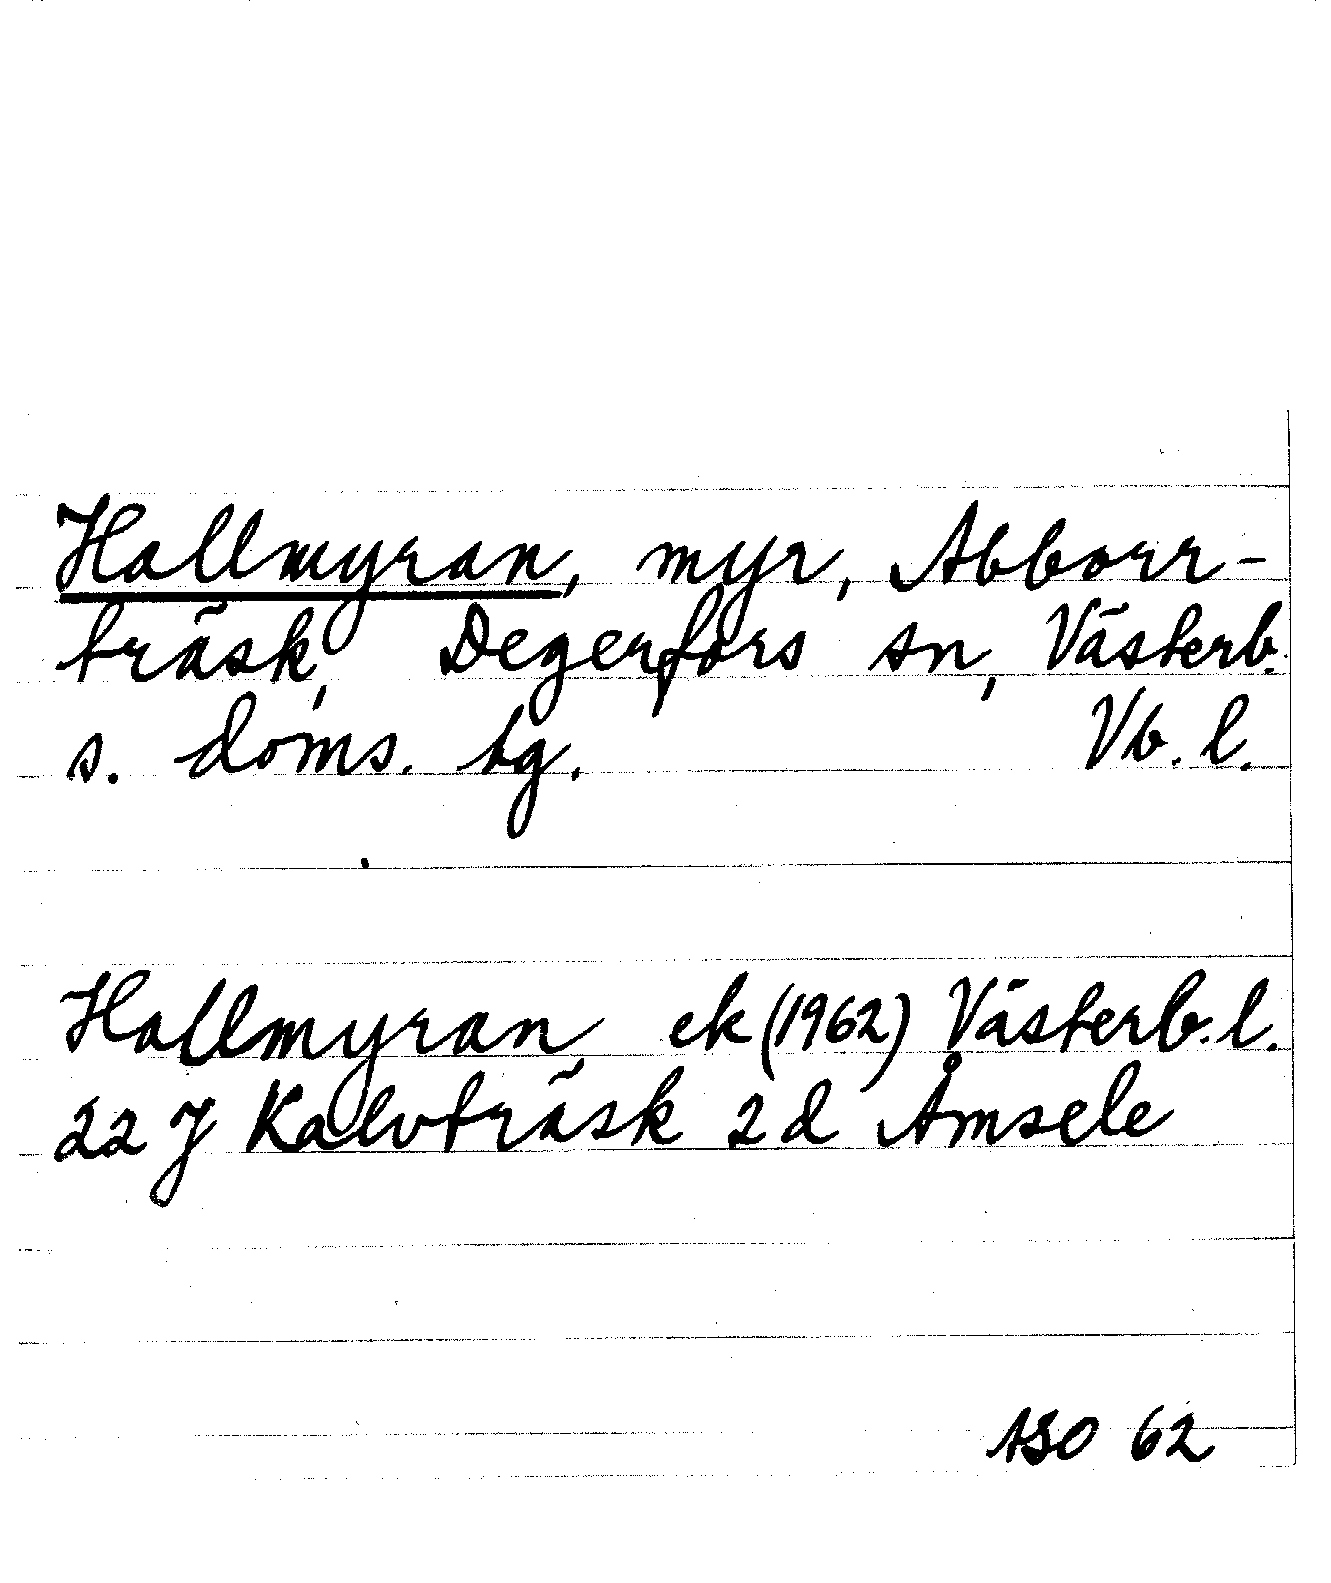 Hallmyran, myr, Abborr-
träsk, Degerfors sn, Västerb.
s. doms. tg. Vb. l.
Hallmyran ek (1962) Västerb. l.
22 J Kalvträsk 2d Åmsele
ASO 62